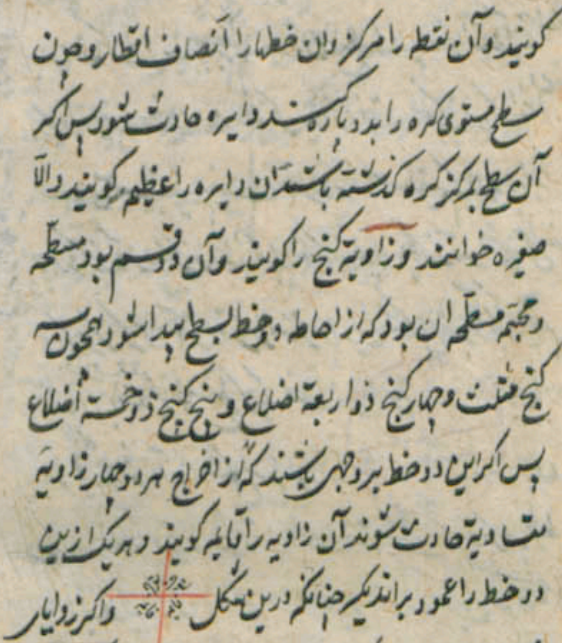 کویند و آن نقطه را مرکز وان خطها را انصاف اقطار و چون
سطح مستوی کره را بدو پاره کند دایره حادث شود پس اکر
آن سطح بمرکز کره کذشته باشد آن دایره را عظیمه کویند والا
صغیره خوانند و زاویه کنج را کویند و آن دو قسم بود مسطحه
و مجسمه مسطحه ان بود که از احاطه دو خط بسطح پیدا شود همچون سه
کنج مثلث و چهار کنج ذو اربعة اضلاع و پنج کنج ذو خمسة اضلاع
پس اکر این دو خط بر وجهی باشند که از اخراج هر دو چهار زاویه
متساویه حادث شوند آن زاویه را قایمه کویند و هر یک ازین
دو خط را عمود بر اندیکر چنانکه درین شکل قایمه قایمه قایمه قایمه و اکر زوایای